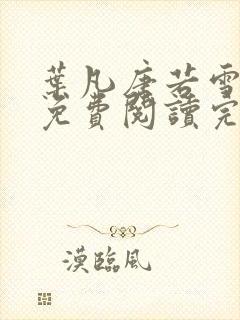 葉凡唐若雪
免費閱讀完
漠臨風